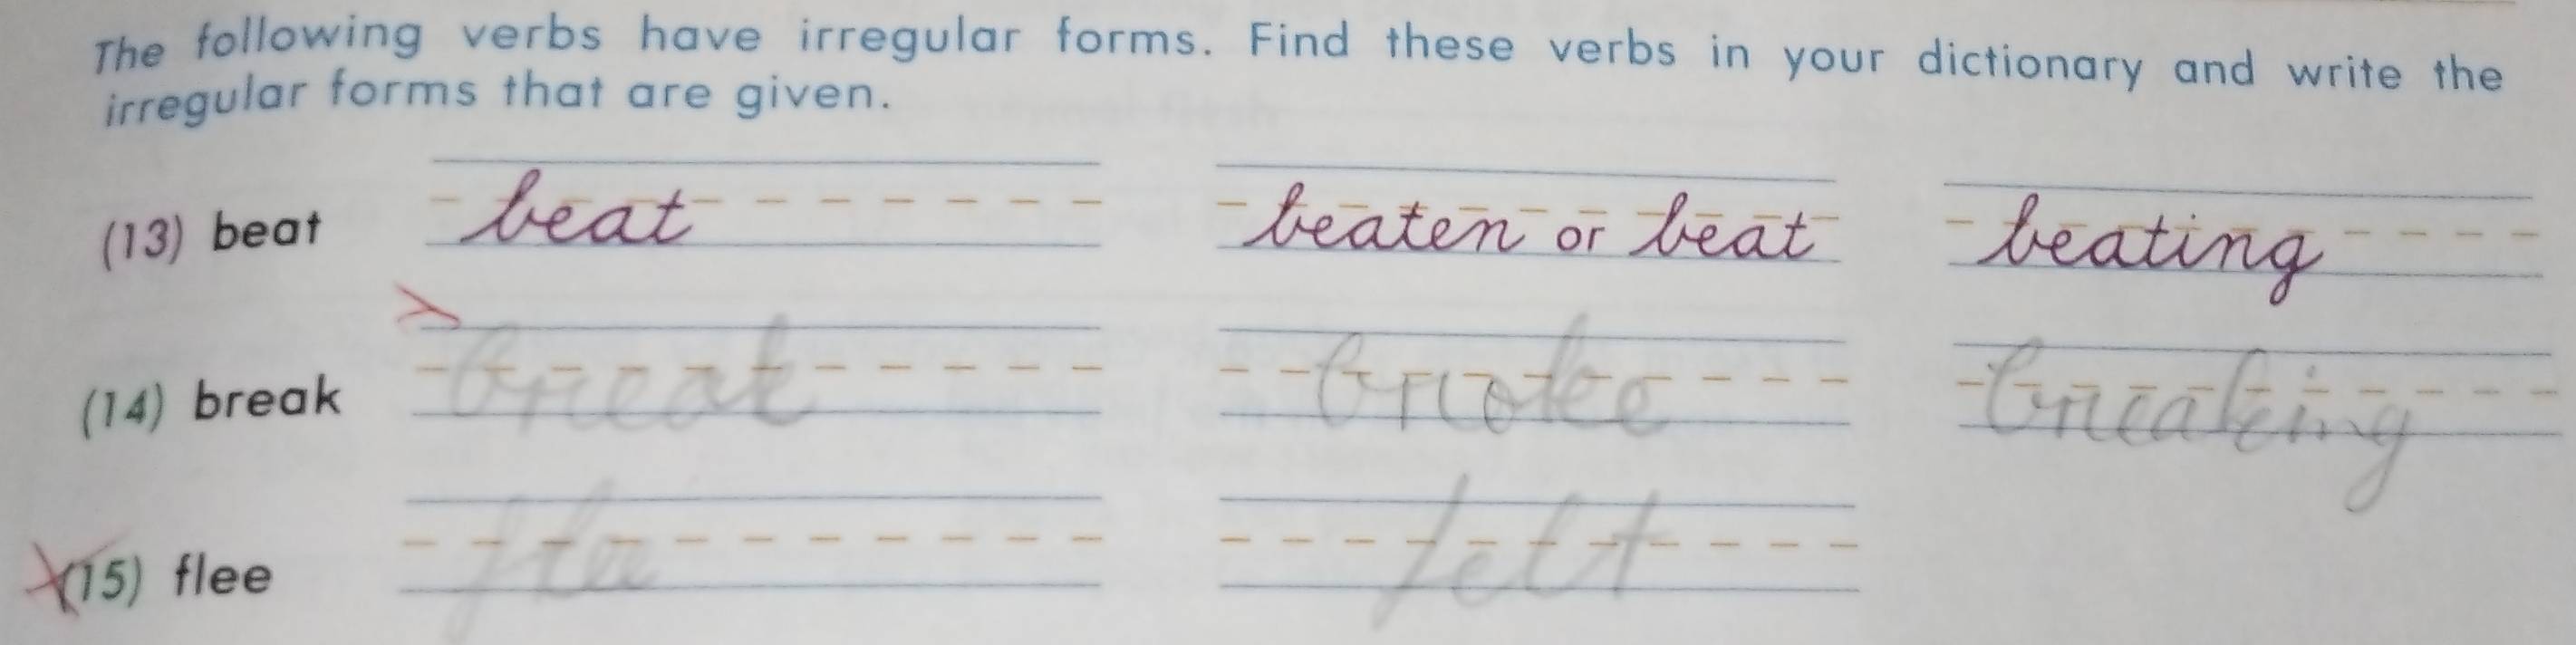 The following verbs have irregular forms. Find these verbs in your dictionary and write the
irregular forms that are given.
(13) beat beat beaten or beat beating
(14) break break broke breaking
(15) flee flee felt